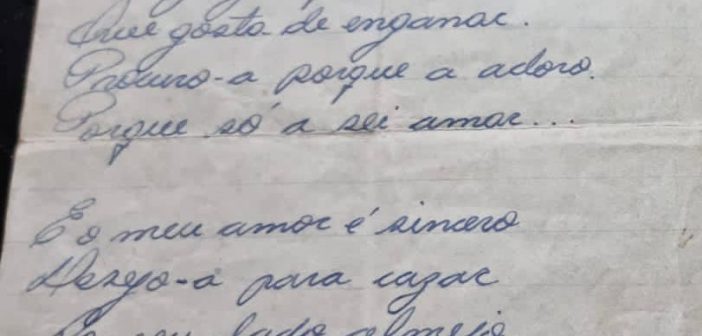 Que gosta de enganar.
Procuro-a porque a adoro.
Porque só a sei amar...
E o meu amor é sincero
Desejo-a para cazar
Ao seu lado almejo